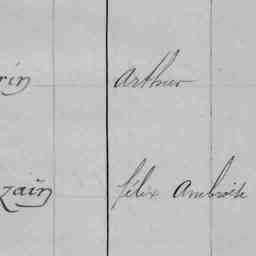 rin Arthur
zain félix Ambroise